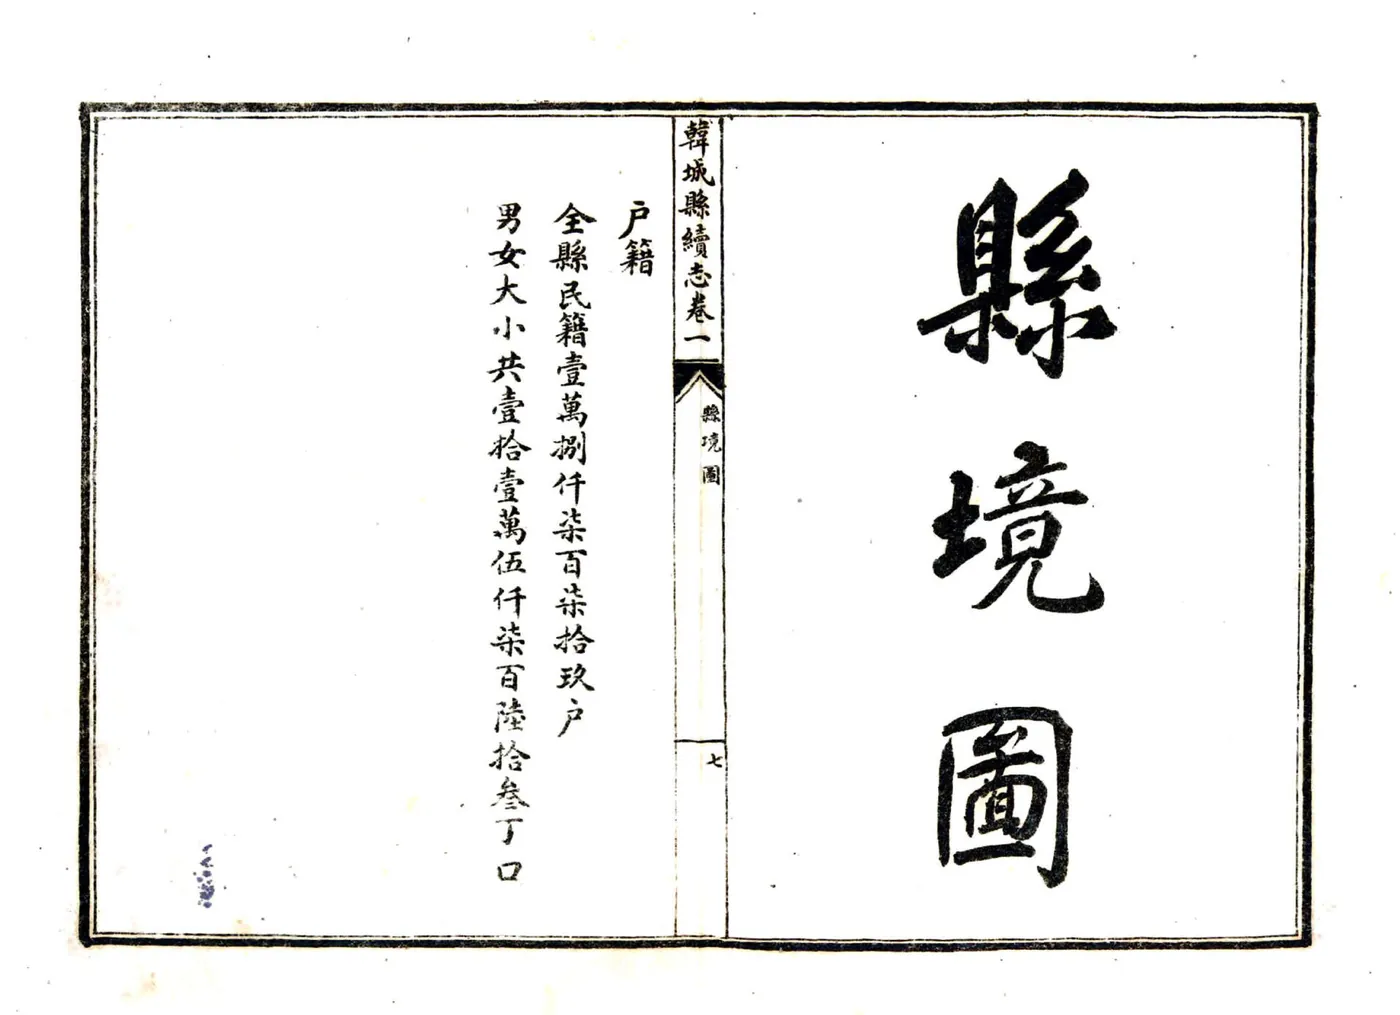 縣境圖
韓城縣續志卷一
縣境圖
七
户籍
全縣民籍壹萬捌仟柒百柒拾玖户
男女大小共壹拾壹萬伍仟柒百陸拾叁丁口